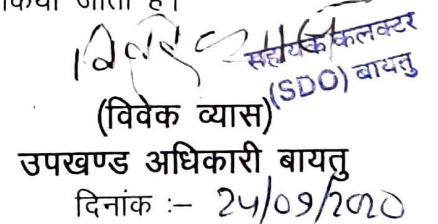 किया जाता है।
सहायक कलक्टर
(SDO) बायतु
(विवेक व्यास)
उपखण्ड अधिकारी बायतु
दिनांक :– 24/09/2020